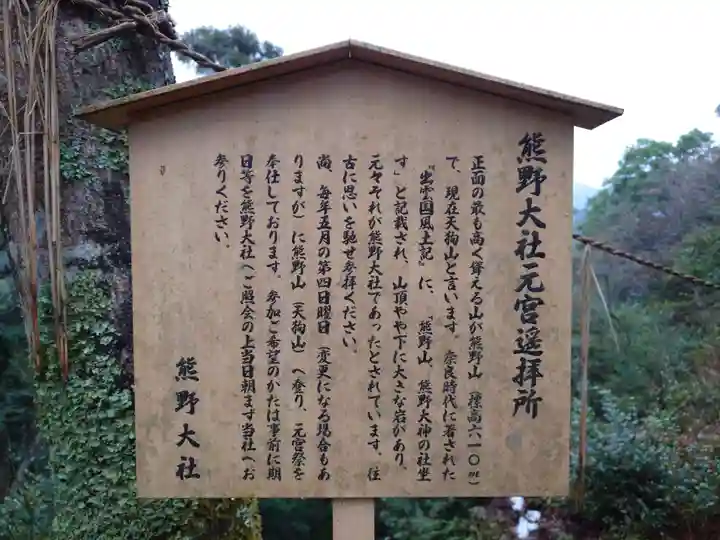 熊野大社元宮遥拝所
正面の最も高く聳える山が熊野山（標高六一〇m）
で、現在天狗山と言います。奈良時代に著された
『出雲国風土記』に、「熊野山、熊野大神の社坐
す」と記載され、山頂やや下に大きな岩があり、
元々それが熊野大社であったとされています。往
古に思いを馳せ参拝ください。
尚、毎年五月の第四日曜日（変更になる場合もあ
りますが）に熊野山（天狗山）へ登り、元宮祭を
奉仕しております。参加ご希望のかたは事前に期
日等を熊野大社へご照会の上当日朝まず当社へお
参りください。
熊野大社